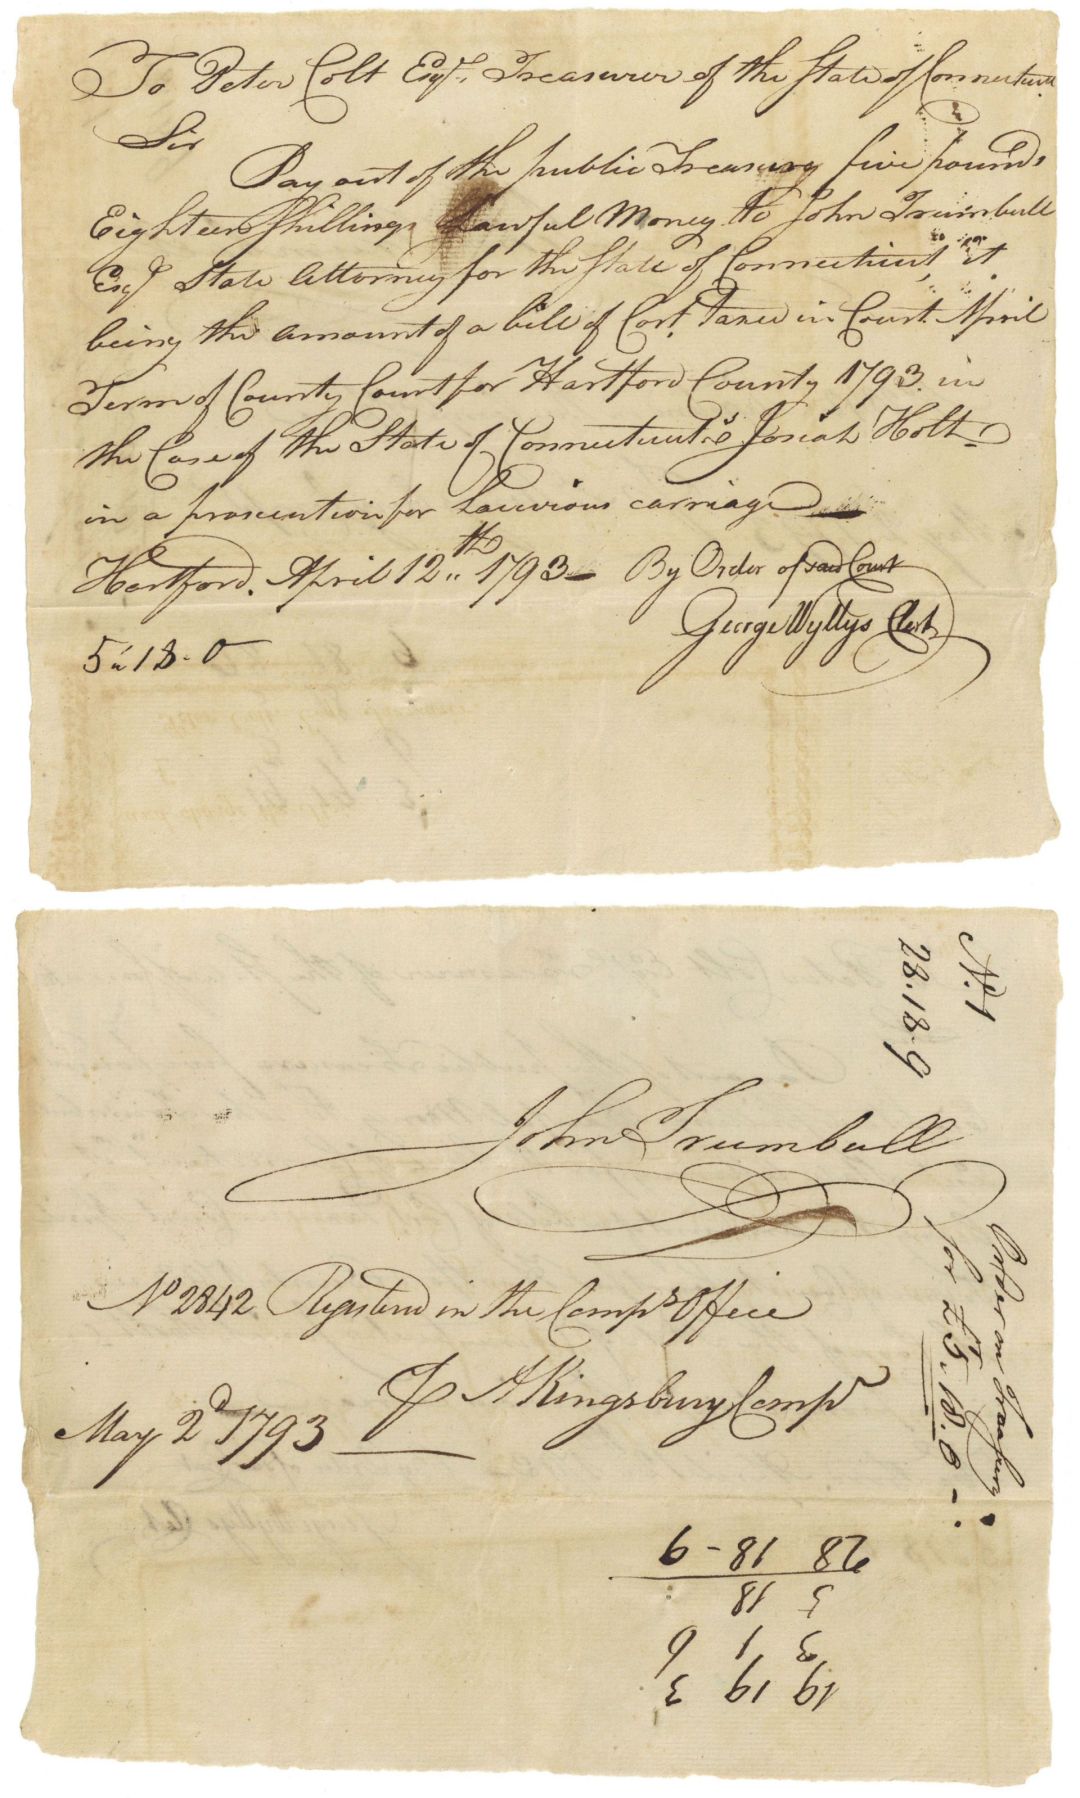 To Peter Colt Esqr. Treasurer of the State of Connecticut
Sir
Pay out of the public Treasury five pounds
Eighteen Shillings Lawful Money to John Trumbull
Esqr State Attorney for the State of Connecticut, it
being the amount of a bill of Cost Taxed in Court April
Term of County Court for Hartford County 1793. in
the Case of the State of Connecticut vs Josiah Holt
in a prosecution for Lascivious carriage
Hartford. April 12th 1793 By Order of said Court
George Wyllys Clerk
5 " 18 - 0
No. 1
28.18.9
John Trumbull
No 2842 Registered in the Compts Office
A Kingsbury Compr
May 2d 1793
Order on Treasury
for £5. 18. 0 -
19 19 3
3 1 6
5 18
28 18 - 9